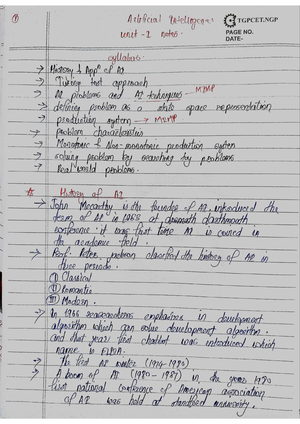 ①
Artificial Intelligence
TGPCET.NGP
unit-1 notes.
PAGE NO.
DATE-
syllabus
→ History & Appn of AI
→ Turing test approach
→ AI problems and AI techniques → MIMP
→ defining problem as a state space representation
→ production system → MIMP
→ problem characteristics
→ Monotonic & Non-monotonic production system
→ solving problem by searching by problems
→ Real world problems.
* History of AI
→ John Mccarthy is the founder of AI introduced the
term of AI in 1956 at
conference. it was first time AI is coined in
the academic field.
→ Prof. Peter classified the history of AI in
three periods.
① Classical
② Romantic
③ Modern.
→ In 1966 emphasizes in development
algorithm which can solve development algorithm.
and that year first chatbot was introduced which
name is ELIZA.
→ The first AI winter (1974-1980)
→ A boom of AI (1980-1987) in the year 1980
first national conference of American association
of AI was held at university.